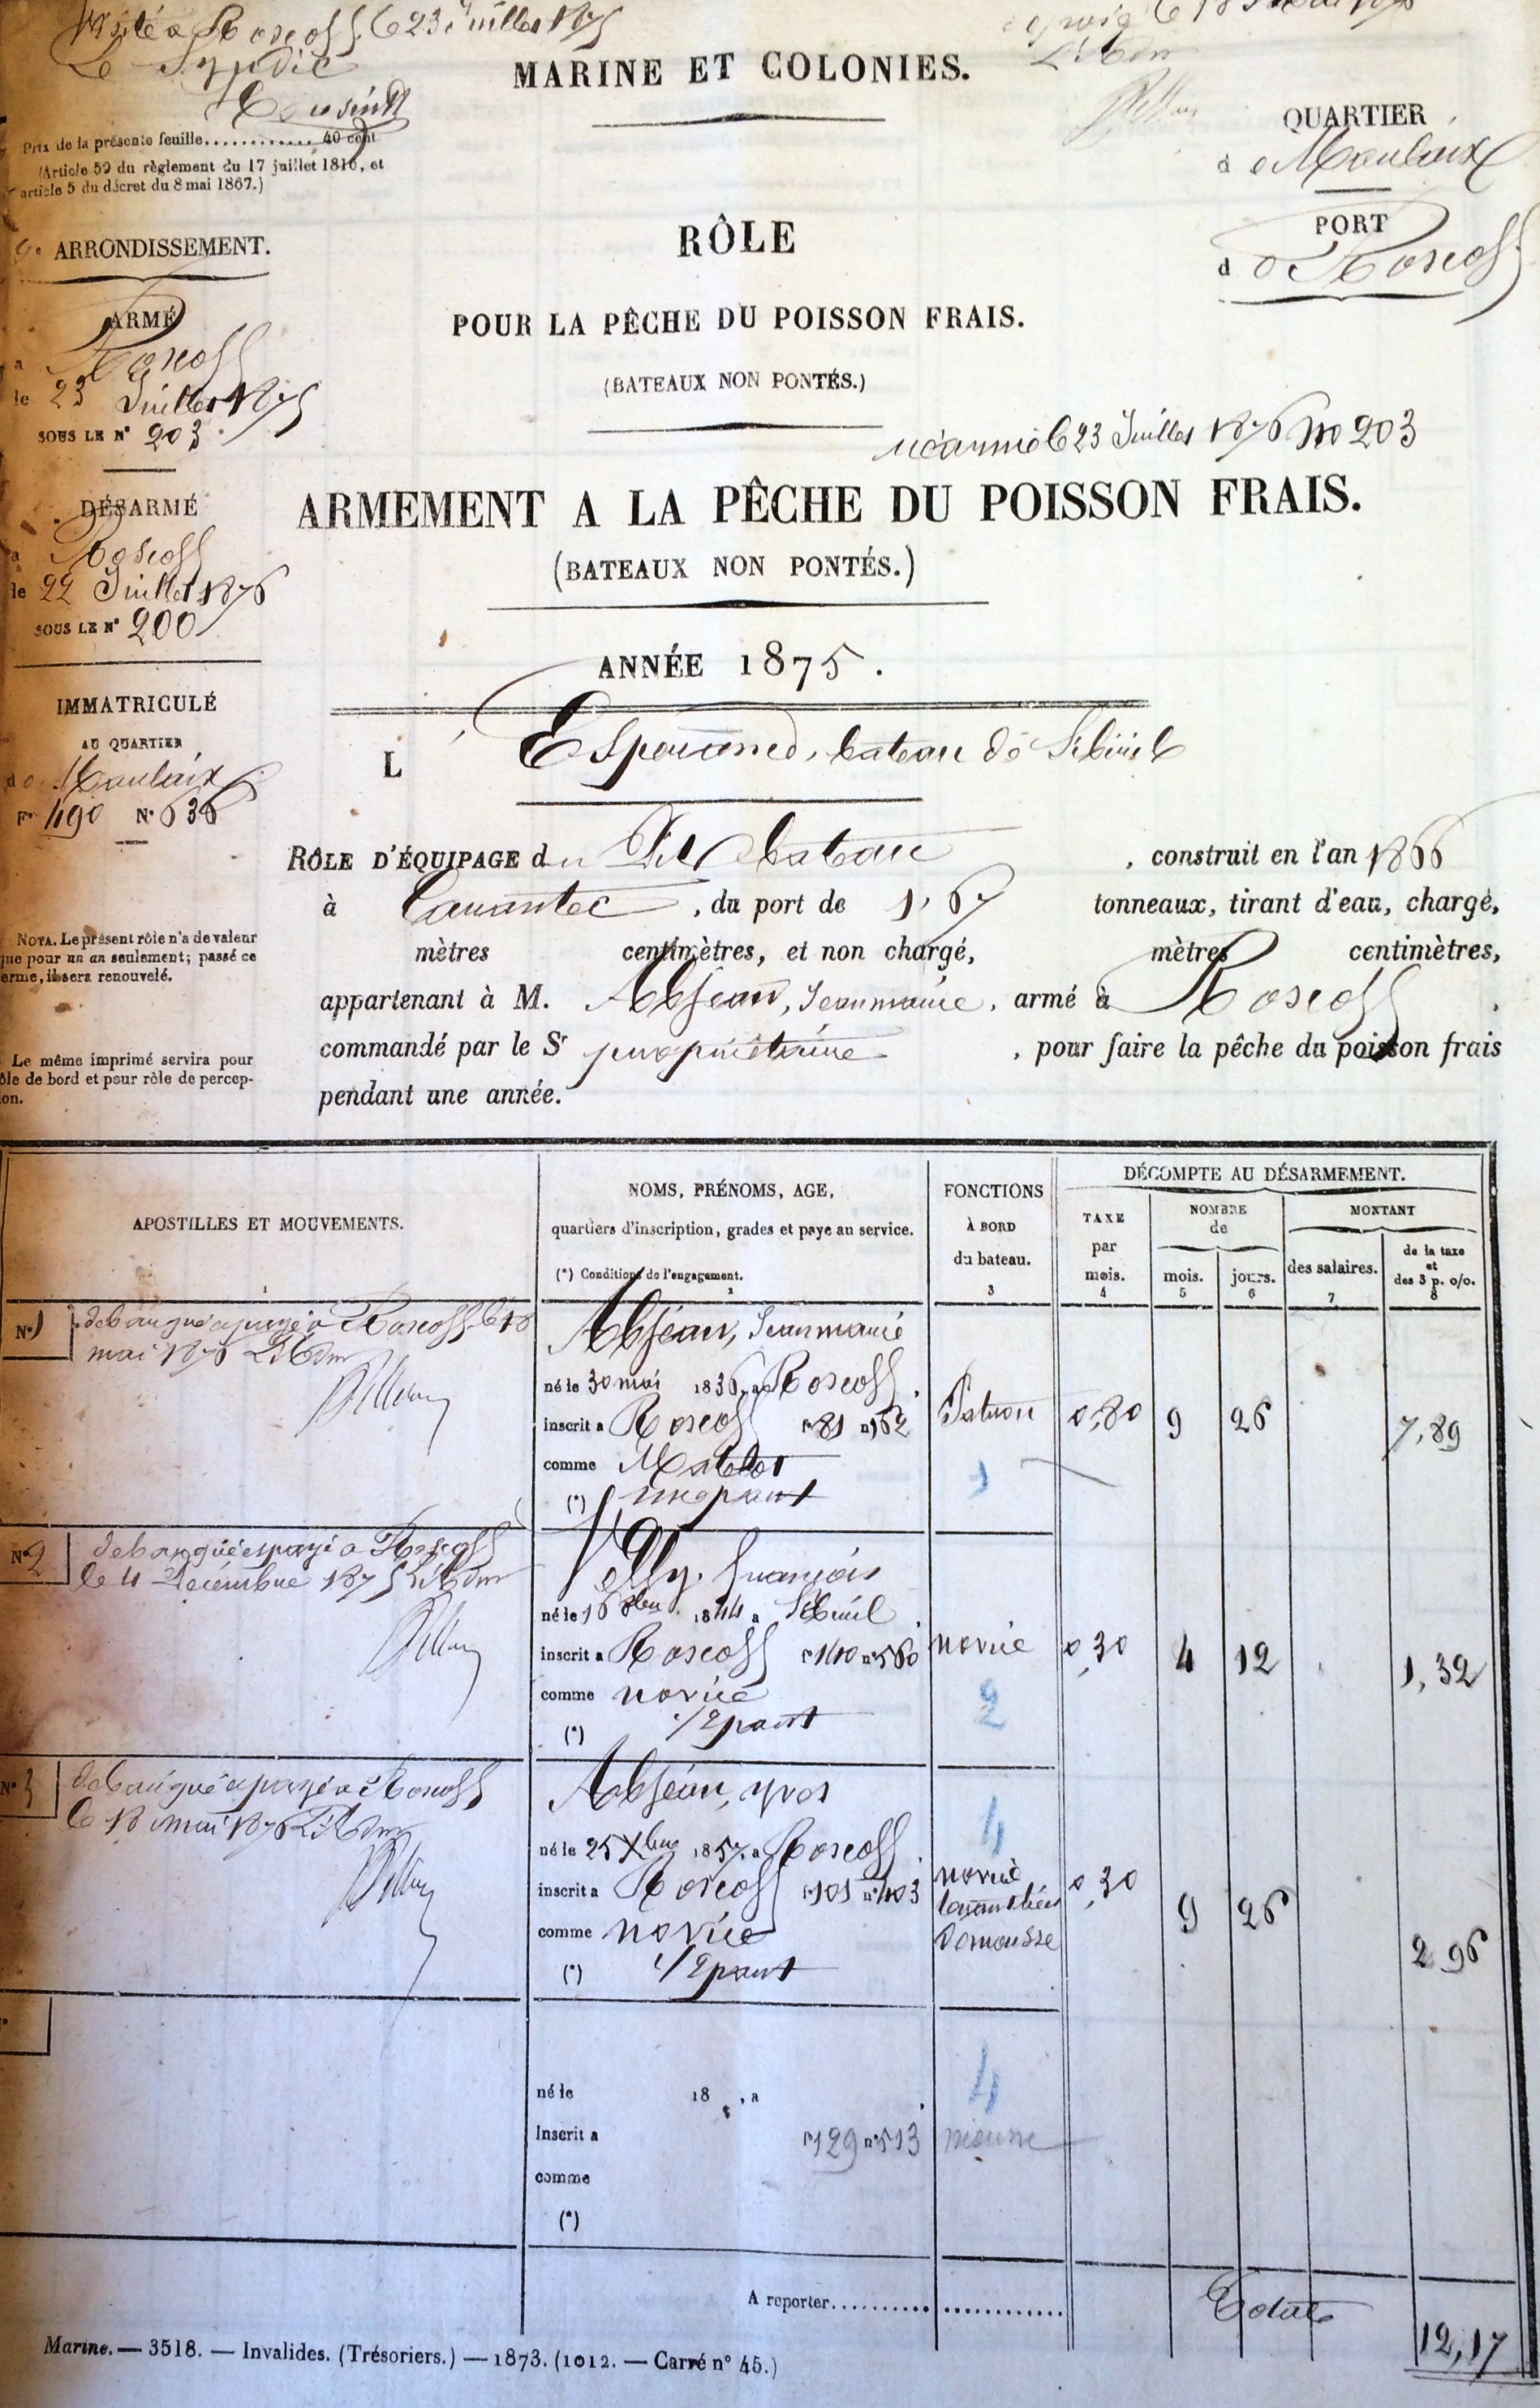 Visité a Roscoff le 23 Juillet 1875
Le Syndic
MARINE ET COLONIES.
Prix de la présente feuille............ 40 cent
(Article 59 du règlement du 17 juillet 1816, et
article 5 du décret du 8 mai 1867.)
QUARTIER
de Morlaix
PORT
de Roscoff
ARRONDISSEMENT.
RÔLE
POUR LA PÊCHE DU POISSON FRAIS.
(BATEAUX NON PONTÉS.)
ARMÉ
a Roscoff
le 23 Juillet 1875
SOUS LE N° 203
réarmé le 23 Juillet 1876 No 203
DÉSARMÉ
a Roscoff
le 22 Juillet 1876
SOUS LE N° 200
ARMEMENT A LA PÊCHE DU POISSON FRAIS.
(BATEAUX NON PONTÉS.)
ANNÉE 1875.
IMMATRICULÉ
AU QUARTIER
de Morlaix
F° 490 N° 636
L' Espérance, bateau de Sibiril
RÔLE D'ÉQUIPAGE du Dit bateau, construit en l'an 1866
à Carantec, du port de 1,67 tonneaux, tirant d'eau, chargé,
mètres centimètres, et non chargé, mètres centimètres,
appartenant à M. Abjean, Jean marie, armé à Roscoff.
commandé par le Sr propriétaire, pour faire la pêche du poisson frais
pendant une année.
NOTA. Le présent rôle n'a de valeur
que pour un an seulement; passé ce
terme, il sera renouvelé.
Le même imprimé servira pour
rôle de bord et pour rôle de percep-
tion.
APOSTILLES ET MOUVEMENTS.
1
NOMS, PRÉNOMS, AGE,
quartiers d'inscription, grades et paye au service.
(*) Conditions de l'engagement.
2
FONCTIONS
À BORD
du bateau.
3
DÉCOMPTE AU DÉSARMEMENT.
TAXE
par
mois.
4
NOMBRE
de
mois.
5
jours.
6
MONTANT
des salaires.
7
de la taxe
et
des 3 p. o/o.
8
N° 1 débarqué et payé à Roscoff le 18
mai 1876
Abjean, Jean marie
né le 30 mai 1836, a Roscoff.
inscrit a Roscoff f° 81 n° 162
comme Matelot
(*) une part
Patron 0,80 9 26 7,89
1
N° 2 débarqué et payé a Roscoff
le 4 Décembre 1875
Velly, François
né le 16 8bre 1844 a Sibiril
inscrit a Roscoff f° 140 n° 560
comme novice
(*) 1/2 part
novice 0,30 4 12 1,32
2
N° 3 débarqué et payé à Roscoff
le 18 mai 1876
Abjean, yves
né le 25 Xbre 1857, a Roscoff.
inscrit a Roscoff f° 101 n° 403
comme novice
(*) 1/2 part
4
novice
de mousse
0,30 9 26 2 96
né le 18 , a
inscrit a f° 129 n° 513
comme
(*)
4
mousse
A reporter.......................
Total 12,17
Marine. — 3518. — Invalides. (Trésoriers.) — 1873. (1012. — Carré n° 45.)